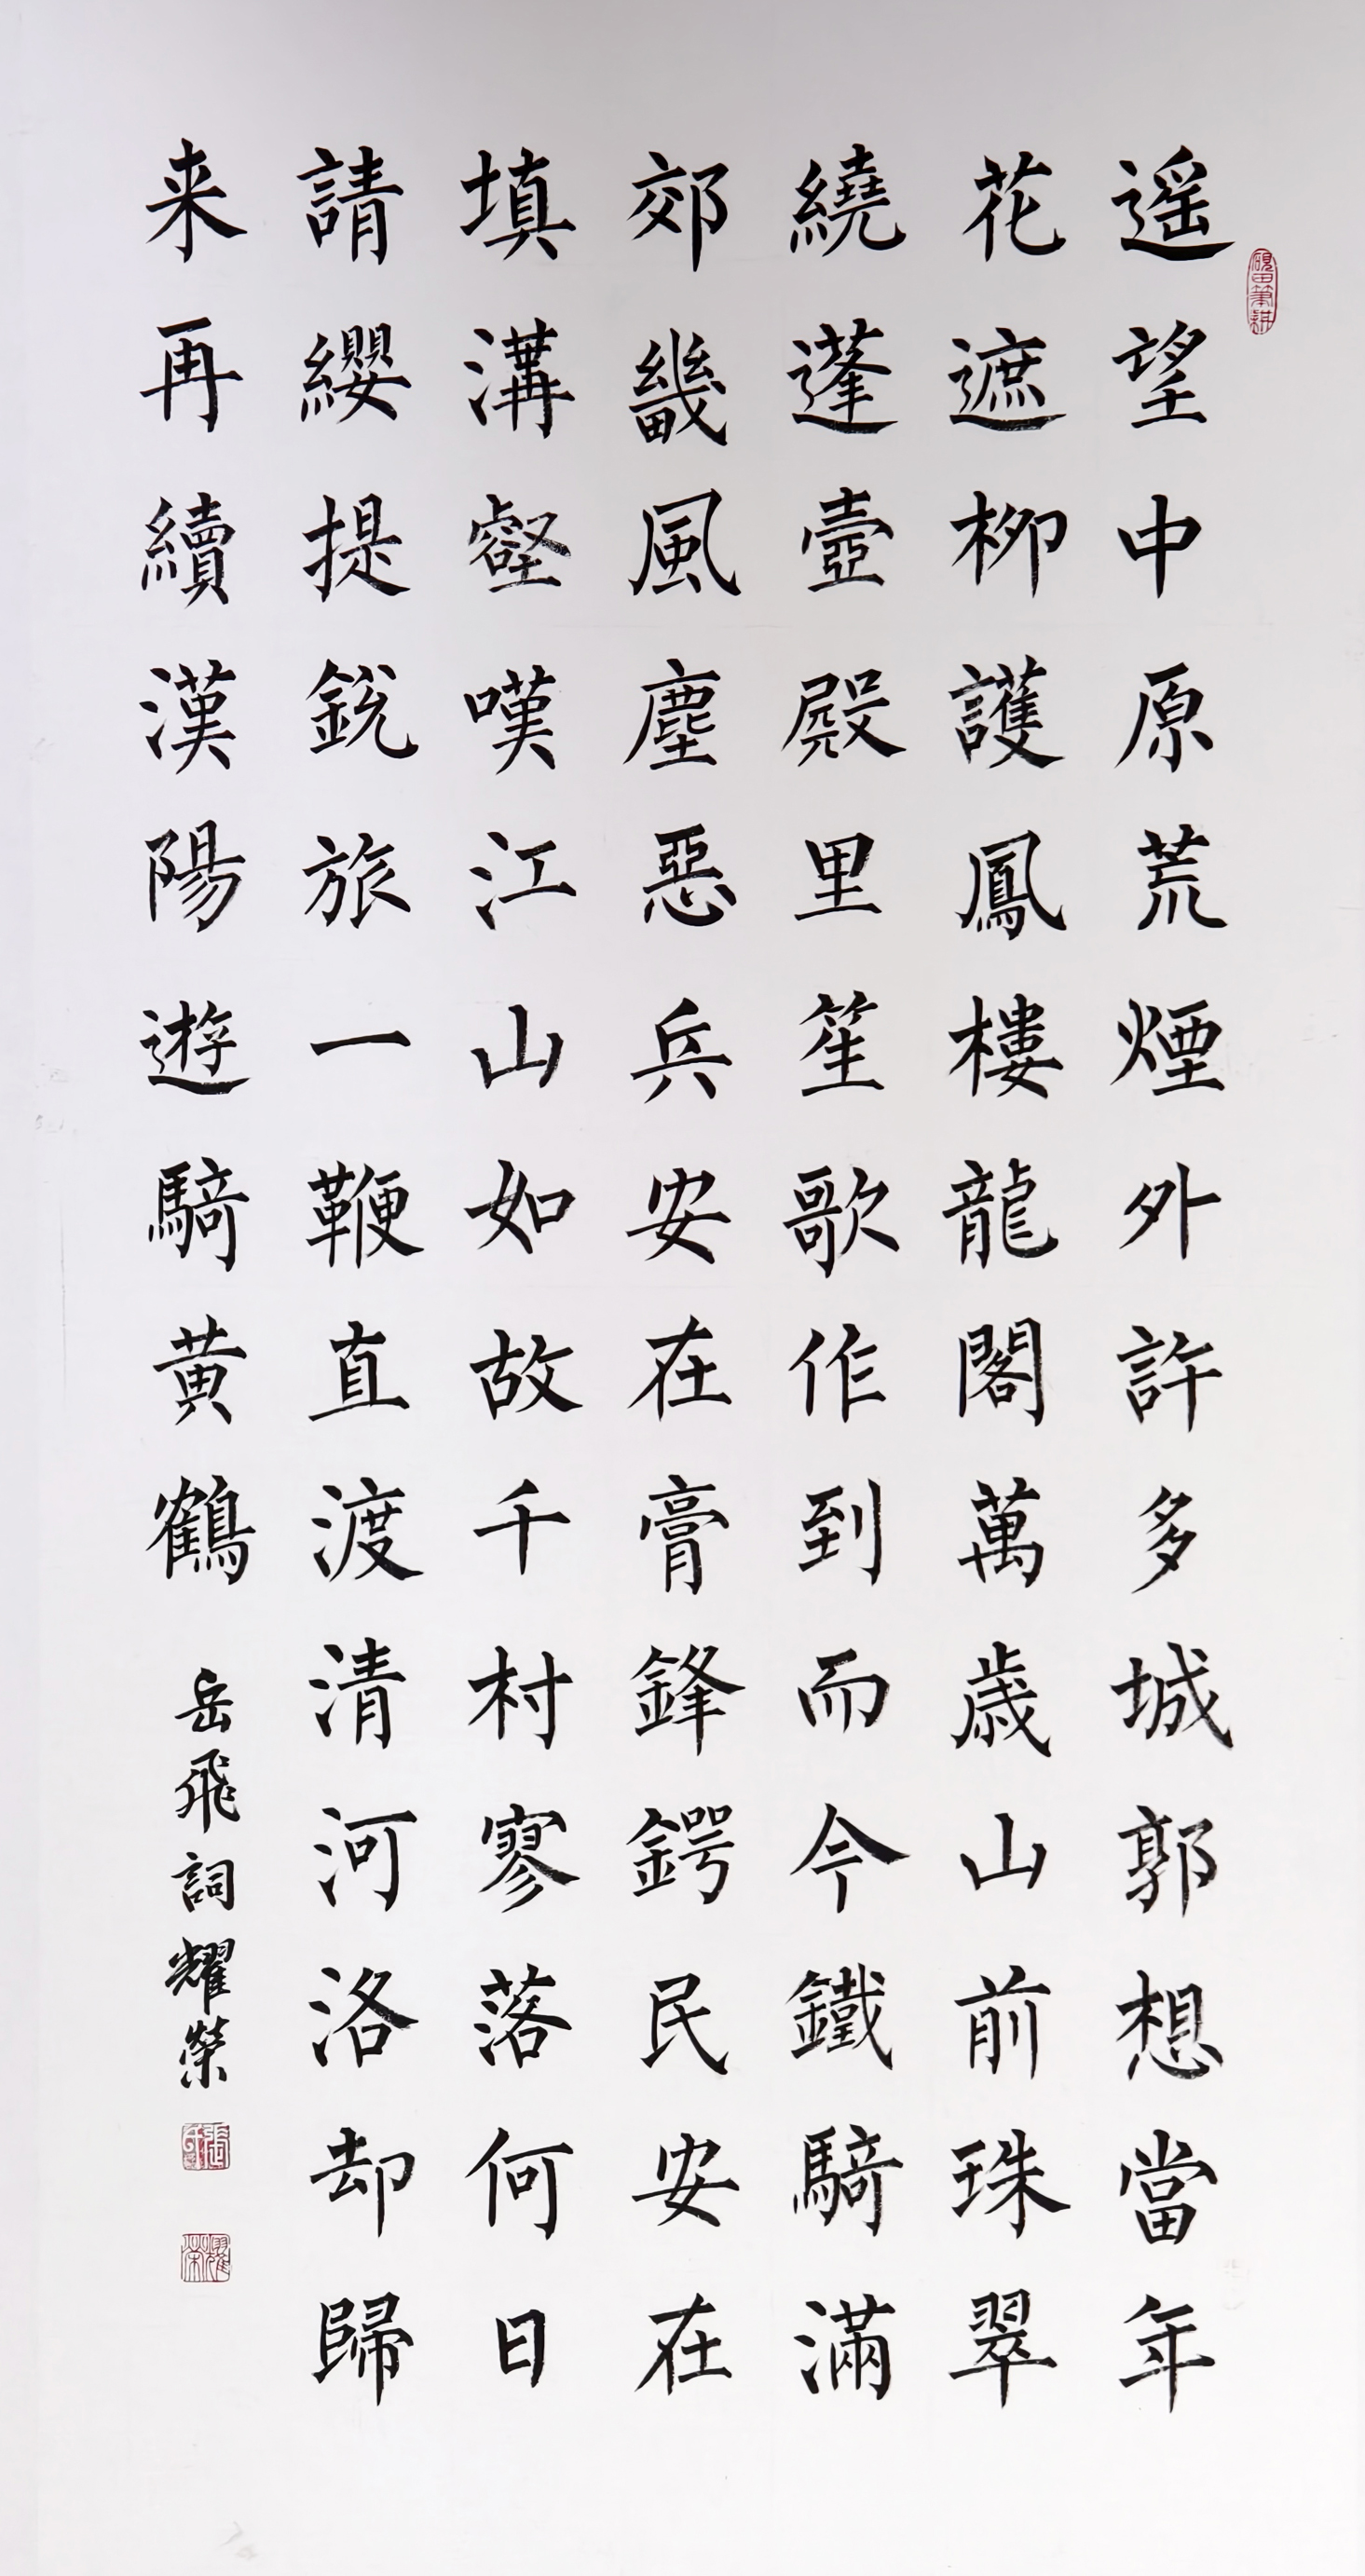 遥望中原荒煙外許多城郭想當年
花遮柳護鳳樓龍閣萬歳山前珠翠
繞蓬壺殿里笙歌作到而今鐵騎滿
郊畿風塵惡兵安在膏鋒鍔民安在
填溝壑嘆江山如故千村寥落何日
請纓提銳旅一鞭直渡清河洛却歸
来再續漢陽遊騎黄鶴
岳飛詞耀榮
硯田筆耕
張氏
耀榮